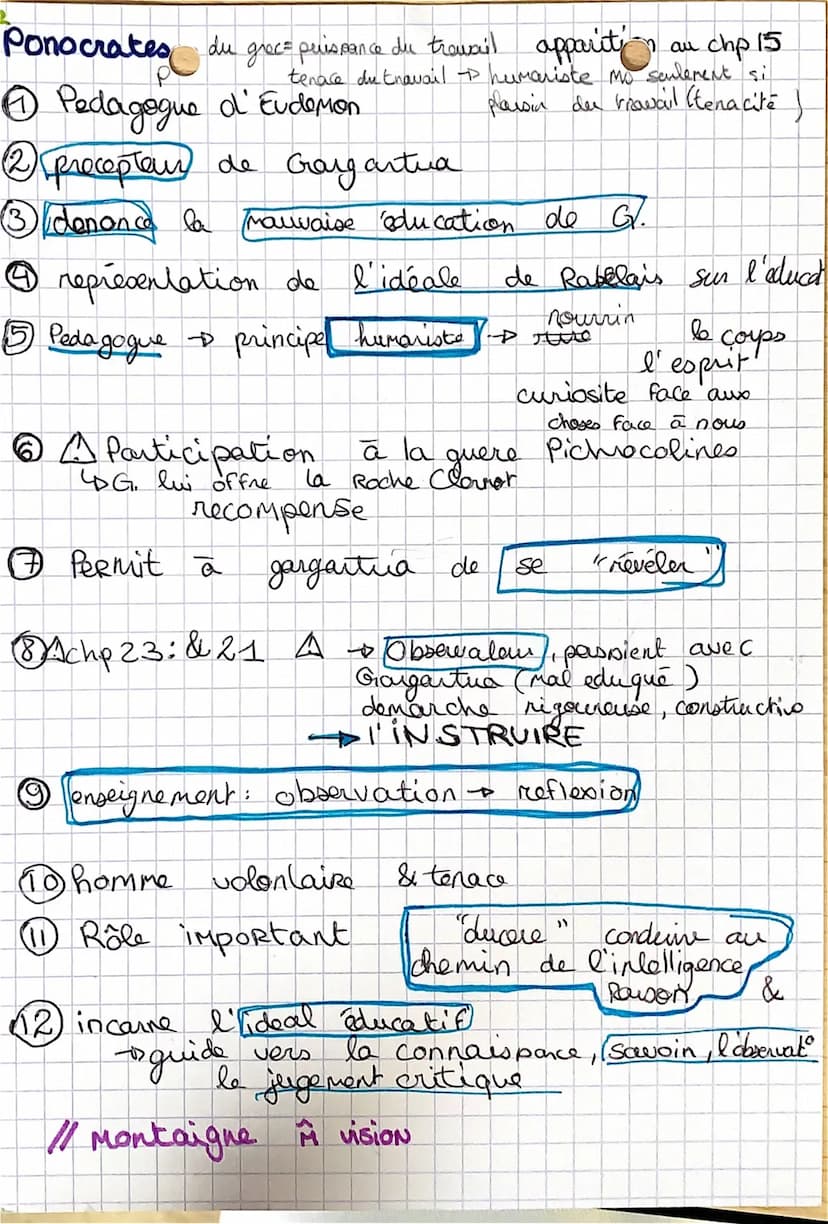 Ponocrates du grec = puissance du travail apparition au chp 15
tenace du travail → humaniste mo seulement si
plaisir du travail (tenacité)
① Pedagogue d'Eudemon
② precepteur de Gargantua
③ denonce la mauvaise éducation de G.
④ représentation de l'idéale de Rabelais sur l'educat
⑤ Pedagogue → principe humaniste → nourrir le corps
l'esprit
curiosite face aux
choses face à nous
⑥ ⚠ Participation à la guere Pichrocolines
↳ G. lui offre la Roche Clermot
recompense
⑦ Permit à gargantua de se "révéler"
⑧ ⚠ chp 23: & 21 ⚠ → Observateur, passient avec
Gargantua (mal eduqué)
demarche rigoureuse, constructive
→ l'INSTRUIRE
⑨ enseignement: observation → reflexion
⑩ homme volontaire & tenace
⑪ Rôle important "ducere" conduire au
chemin de l'intelligence
& Raison
⑫ incarne l'ideal éducatif
→ guide vers la connaissance, savoir, l'observat°
le jugement critique
// Montaigne m̂ vision